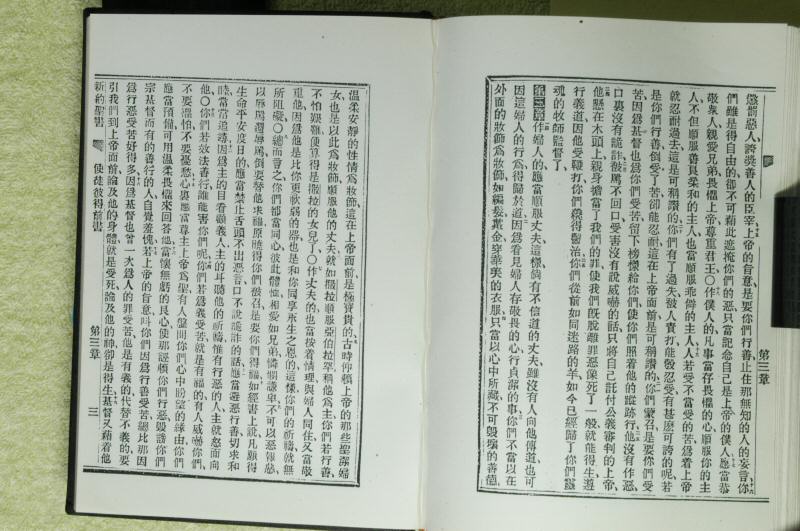 第三章
懲罰惡人、誇奬善人的臣宰、上帝的旨意、是要你們行善、止住那無知的人的妄言、你
們雖是得自由的、卻不可藉此遮掩你們的惡、只當記念自己是上帝的僕人、應當恭
敬衆人、親愛兄弟、畏懼上帝、尊重君王○作僕人的、凡事當存畏懼的心、順服你的主
人、不但順服善良柔和的主人、也當順服乖僻的主人、人若受不當受的苦、爲着上帝
就忍耐過去、這是可稱讚的、你們有了過失、被人責打、能發忍受、有甚麼可誇的呢、若
是你們行善、倒受了苦、卻能忍耐、這在上帝面前是可稱讚的、你們蒙召是要你們受
苦、因爲基督也爲你們受苦、留下榜樣給你們、使你們照着他的蹤跡行、他沒有作惡、
口裏沒有詭詐、被罵不回口、受害沒有說威嚇的話、只將自己託付公義審判的上帝、
他懸在木頭上、親身擔當了我們的罪、使我們旣脫離罪惡像死了一般、就能得生、遵
行義道、因他受鞭打、你們纔得醫治、你們從前如同迷路的羊、如今已經歸了你們靈
魂的牧師監督了、
第三章作婦人的、應當順服丈夫、這樣倘有不信道的丈夫、雖沒有人向他傳道、也可
因這婦人的行爲、得歸於道、因爲看見婦人存敬畏的心、行貞潔的事、你們不當以在
外面的妝飾爲妝飾、如編髮、戴金、穿華美的衣服、只當以心中所藏、不可毀壞的善德、
溫柔安靜的性情爲妝飾、這在上帝面前是極寶貴的、古時仰賴上帝的那些聖潔婦
女、也是以此爲妝飾、順服他的丈夫、就如撒拉順服亞伯拉罕稱他爲主、你們若行善、
不怕艱難、便算得是撒拉的女兒了○作丈夫的、也當按着情理與婦人同住、又當敬
重他、因爲他是比你更軟弱的器、也是和你同享永生之恩的、這樣、你們的祈禱就無
所阻礙○總而言之、你們都當同心、彼此體恤、相愛如兄弟、憐憫謙卑、不可以惡報惡、
以辱罵還辱罵、倒要替他求福、原曉得你們被召、是要你們得福、如經書上說、凡願得
生命平安度日的、應當禁止舌頭不出惡言、口不說詭詐的話、應當避惡行善、切求和
睦、當當追尋、因爲主的目看顧義人、主的耳聽他的祈禱、惟有行惡的人、主就怒面向
他○你們若效法善行、誰能害你們呢、你們若爲義受苦、就是有福的、有人威嚇你們、
不要懼怕、不要憂愁、心裏應當尊主上帝爲聖、有人盤問你們心中盼望的緣由、你們
應當預備、可用溫柔畏懼來回答他、當懷無虧的良心、使那誣賴你們行惡毀謗你們
宗基督而有的善行的人、自覺羞愧、若上帝的旨意、叫你們因爲行善受苦、總比那因
爲行惡受苦好得多、因爲基督也曾一次爲人的罪受苦、他是有義的、代替不義的、要
引我們到上帝面前、論及他的身體、就是受死、論及他的神、卻是得生、基督又藉着他
新約聖書　使徒彼得前書　第三章　三